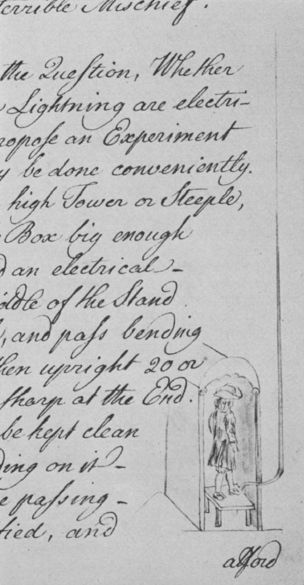 terrible Mischief.
the Question, Whether
Lightning are electri-
ropose an Experiment
y be done conveniently.
high Tower or Steeple,
Box big enough
d an electrical-
iddle of the Stand
, and pass bending
then upright 20 or
sharp at the End.
be kept clean
ding on it-
e passing-
tied, and
afford